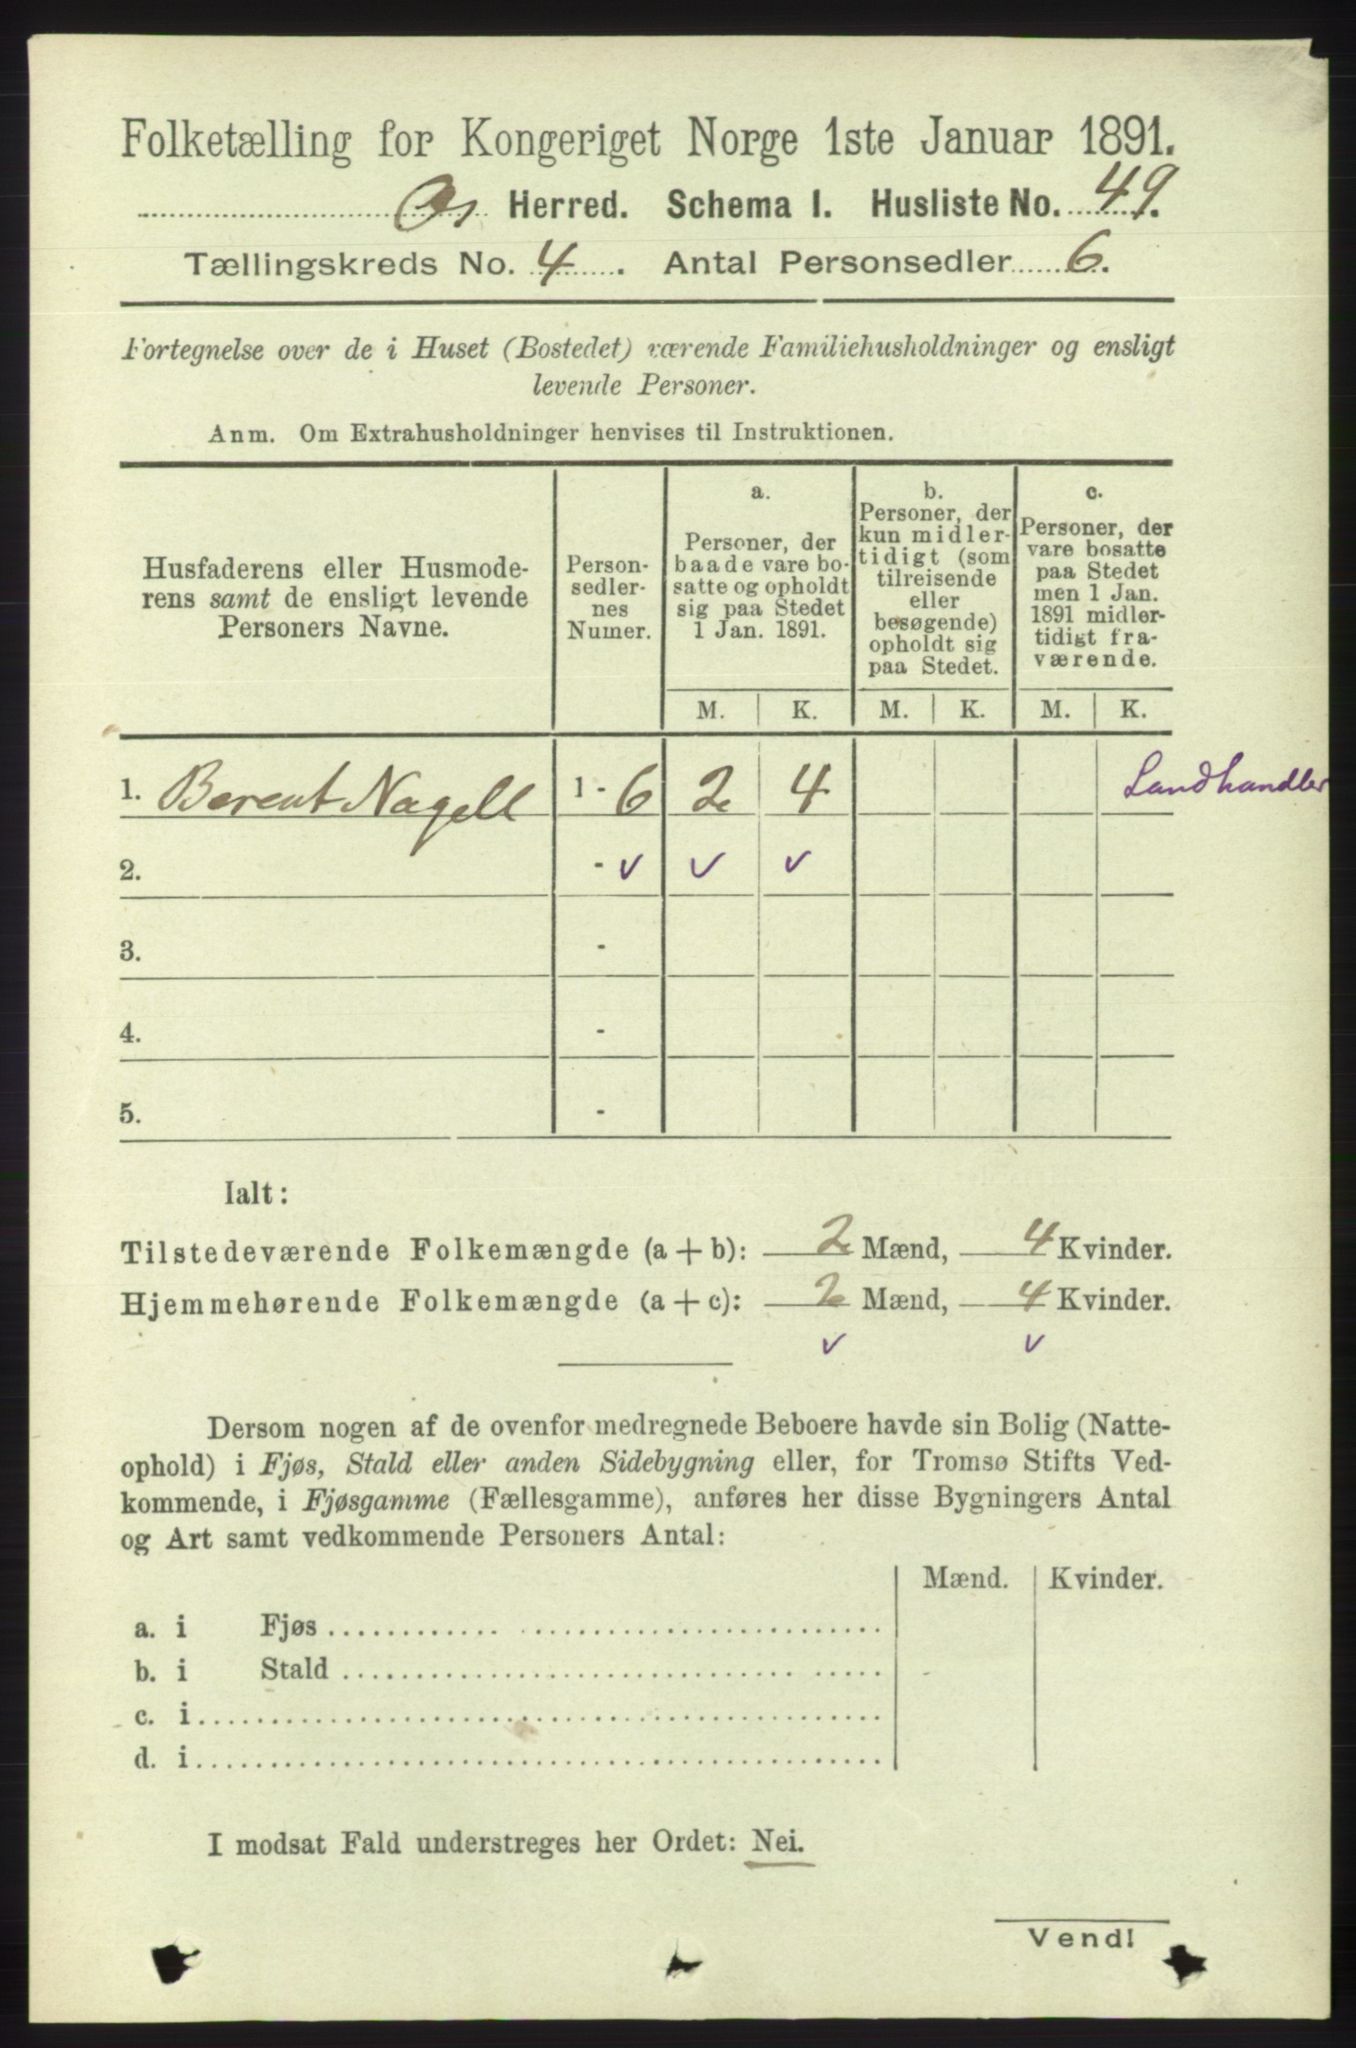 Folketælling for Kongeriget Norge 1ste Januar 1891.
Os Herred. Schema I. Husliste No. 49.
Tællingskreds No. 4. Antal Personsedler 6.
Fortegnelse over de i Huset (Bostedet) værende Familiehusholdninger og ensligt
levende Personer.
Anm. Om Extrahusholdninger henvises til Instruktionen.
Husfaderens eller Husmode-
rens samt de ensligt levende
Personers Navne.
Person-
sedler-
nes
Numer.
a.
Personer, der
baade vare bo-
satte og opholdt
sig paa Stedet
1 Jan. 1891.
b.
Personer, der
kun midler-
tidigt (som
tilreisende
eller
besøgende)
opholdt sig
paa Stedet.
c.
Personer, der
vare bosatte
paa Stedet
men 1 Jan.
1891 midler-
tidigt fra-
værende.
M. K. M. K. M. K.
1. Berent Nagell 1 - 6 2 4 Landhandler
2. - v v v
3. -
4. -
5. -
Ialt:
Tilstedeværende Folkemængde (a + b): 2 Mænd, 4 Kvinder.
Hjemmehørende Folkemængde (a + c): 2 Mænd, 4 Kvinder.
v v
Dersom nogen af de ovenfor medregnede Beboere havde sin Bolig (Natte-
ophold) i Fjøs, Stald eller anden Sidebygning eller, for Tromsø Stifts Ved-
kommende, i Fjøsgamme (Fællesgamme), anføres her disse Bygningers Antal
og Art samt vedkommende Personers Antal:
Mænd. Kvinder.
a. i Fjøs
b. i Stald
c. i
d. i
I modsat Fald understreges her Ordet: Nei.
Vend!